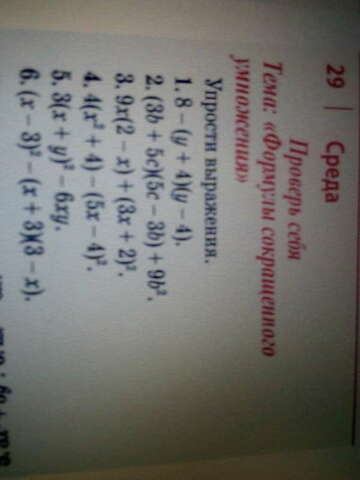 29 | Среда
Проверь себя
Тема: «Формулы сокращенного
умножения»
Упрости выражения.
1. 8 – (y + 4)(y – 4).
2. (3b + 5c)(5c – 3b) + 9b².
3. 9x(2 – x) + (3x + 2)².
4. 4(x² + 4) – (5x – 4)².
5. 3(x + y)² – 6xy.
6. (x – 3)² – (x + 3)(3 – x).